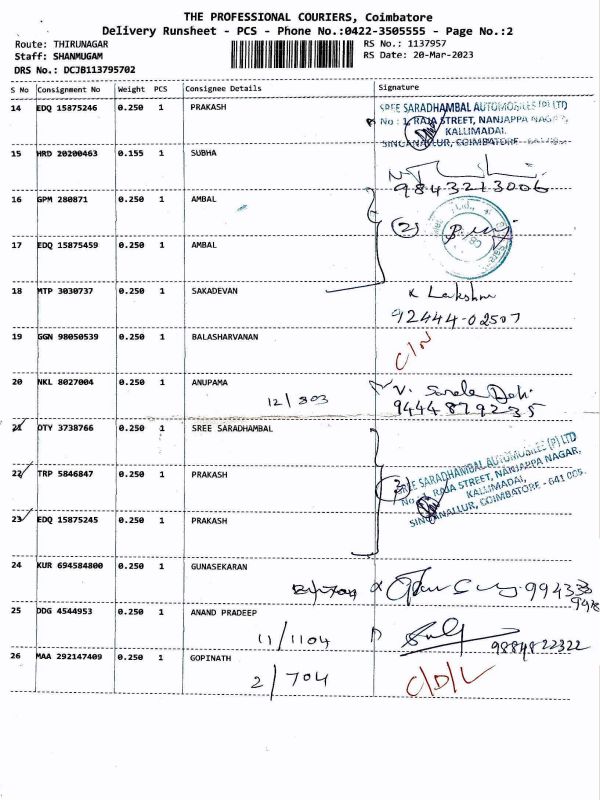 THE PROFESSIONAL COURIERS, Coimbatore
Delivery Runsheet - PCS - Phone No.:0422-3505555 - Page No.:2
Route: THIRUNAGAR
Staff: SHANMUGAM
DRS No.: DCJB113795702
RS No.: 1137957
RS Date: 20-Mar-2023
S No Consignment No Weight PCS Consignee Details Signature
14 EDQ 15875246 0.250 1 PRAKASH
SREE SARADHAMBAL AUTOMOBILES (P) LTD
No : 1, RAJA STREET, NANJAPPA NAGAR,
KALLIMADAI,
SINGANALLUR, COIMBATORE
15 HRD 20200463 0.155 1 SUBHA
9843213006
16 GPM 280871 0.250 1 AMBAL
(2)
17 EDQ 15875459 0.250 1 AMBAL
18 MTP 3030737 0.250 1 SAKADEVAN
K Lakshmi
92444-02507
19 GGN 98050539 0.250 1 BALASHARVANAN
C/N
20 NKL 8027004 0.250 1 ANUPAMA
12/303
V. Sarala Devi
9444879235
21 OTY 3738766 0.250 1 SREE SARADHAMBAL
22 TRP 5846847 0.250 1 PRAKASH
(3)
SREE SARADHAMBAL AUTOMOBILES (P) LTD
No : 1, RAJA STREET, NANJAPPA NAGAR,
KALLIMADAI,
SINGANALLUR, COIMBATORE - 641 005.
23 EDQ 15875245 0.250 1 PRAKASH
24 KUR 694584800 0.250 1 GUNASEKARAN
25 DDG 4544953 0.250 1 ANAND PRADEEP
11/1104
9884822322
26 MAA 292147409 0.250 1 GOPINATH
2/704
C/D/L